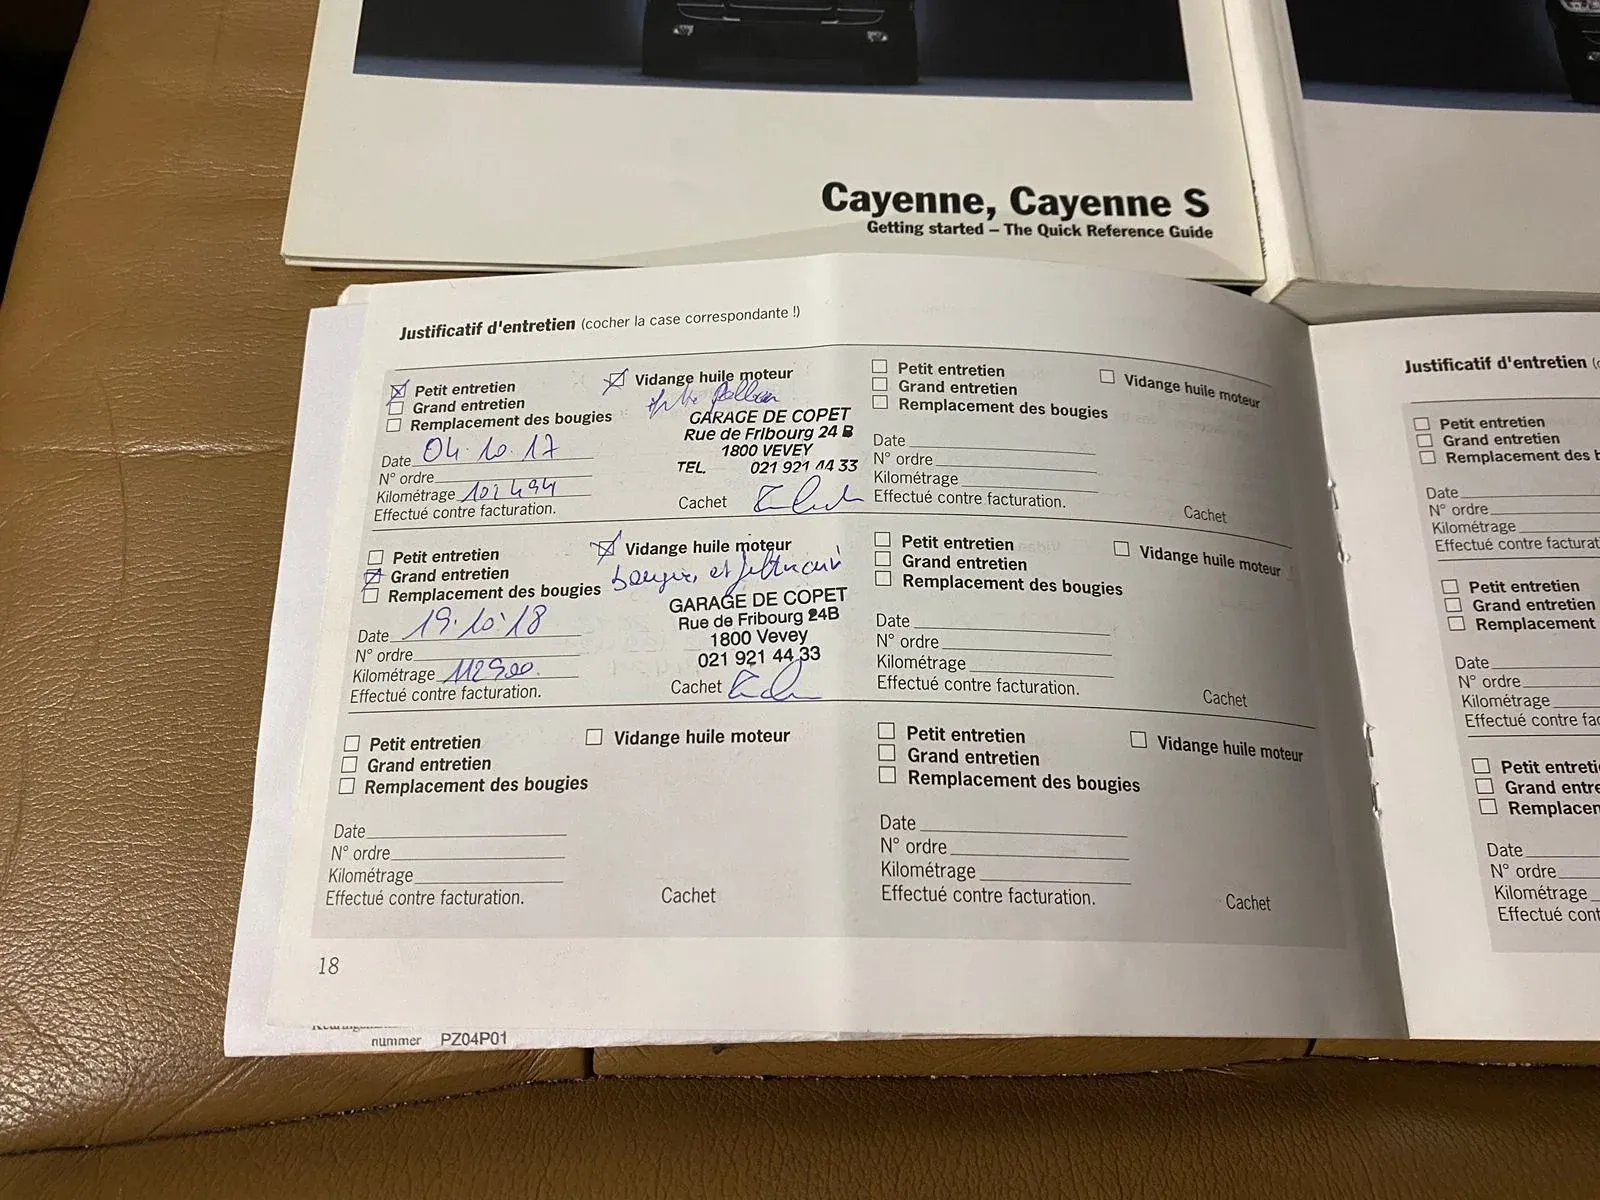 Cayenne, Cayenne S
Getting started – The Quick Reference Guide
Justificatif d'entretien (cocher la case correspondante !)
Petit entretien
Grand entretien
Remplacement des bougies
Vidange huile moteur
GARAGE DE COPET
Rue de Fribourg 24 B
1800 VEVEY
TEL. 021 921 44 33
Date 04.10.17
N° ordre
Kilométrage
Effectué contre facturation.
Cachet
Petit entretien
Grand entretien
Remplacement des bougies
Vidange huile moteur
GARAGE DE COPET
Rue de Fribourg 24B
1800 Vevey
021 921 44 33
Date 19.10.18
N° ordre
Kilométrage 112900
Effectué contre facturation.
Cachet
Petit entretien
Grand entretien
Remplacement des bougies
Vidange huile moteur
Date
N° ordre
Kilométrage
Effectué contre facturation.
Cachet
Petit entretien
Grand entretien
Remplacement des bougies
Vidange huile moteur
Date
N° ordre
Kilométrage
Effectué contre facturation.
Cachet
Petit entretien
Grand entretien
Remplacement des bougies
Vidange huile moteur
Date
N° ordre
Kilométrage
Effectué contre facturation.
Cachet
Petit entretien
Grand entretien
Remplacement des bougies
Vidange huile moteur
Date
N° ordre
Kilométrage
Effectué contre facturation.
Cachet
18
nummer PZ04P01
Justificatif d'entretien (
Petit entretien
Grand entretien
Remplacement des b
Date
N° ordre
Kilométrage
Effectué contre facturat
Petit entretien
Grand entretien
Remplacement
Date
N° ordre
Kilométrage
Effectué contre fac
Petit entreti
Grand entre
Remplacen
Date
N° ordre
Kilométrage
Effectué cont